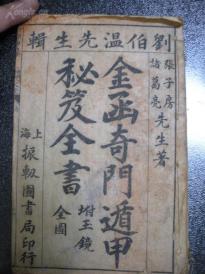 劉伯温先生輯
張子房
諸葛亮
先生著
金函奇門遁甲
秘笈全書
坿玉鏡
全圖
上海
振新圖書局印行